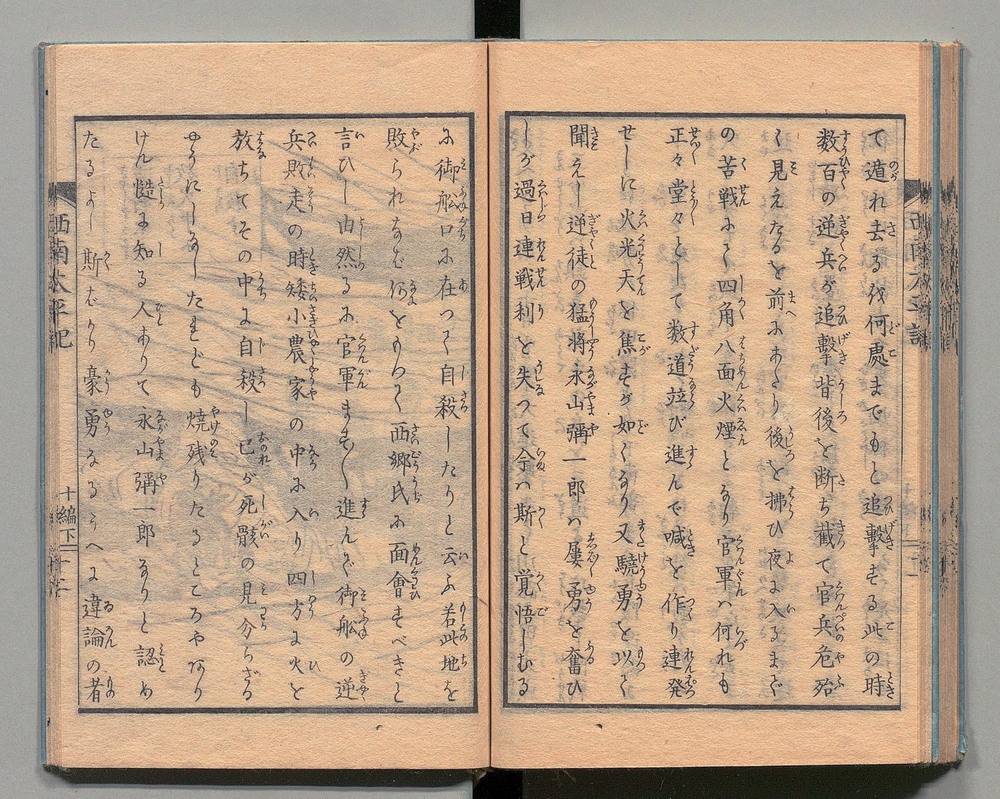 て遁れ去る我何處までもと追擊する此の時
数百の逆兵が追擊背後を断ち截て官兵危殆
く見えたるを前にあたり後を拂ひ夜に入るまで
の苦戦にて四角八面火煙となり官軍ハ何れも
正々堂々として数道並び進んで喊を作り連発
せしに火光天を焦すが如くなり又驍勇を以て
聞えし逆徒の猛将永山彌一郎ハ屢勇を奮ひ
しが過日連戦利を失つて今ハ斯と覚悟しむる
に御舩口に在つて自殺したりと云ふ若此地を
敗られなば何をもつて西郷氏に面會すべきと
言ひし由然るに官軍ますく進んで御舩の逆
兵敗走の時矮小農家の中に入り四方に火を
放ちてその中に自殺し己が死骸の見分らざる
やうにしなしたれども焼残りたるところやありけ
けん慥に知る人ありて永山彌一郎なりと認め
たるよし斯ばかり豪勇なるうへに違論の者
西南太平記
十編下